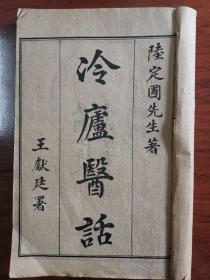 陸定圃先生著
冷廬醫話
王獻廷署